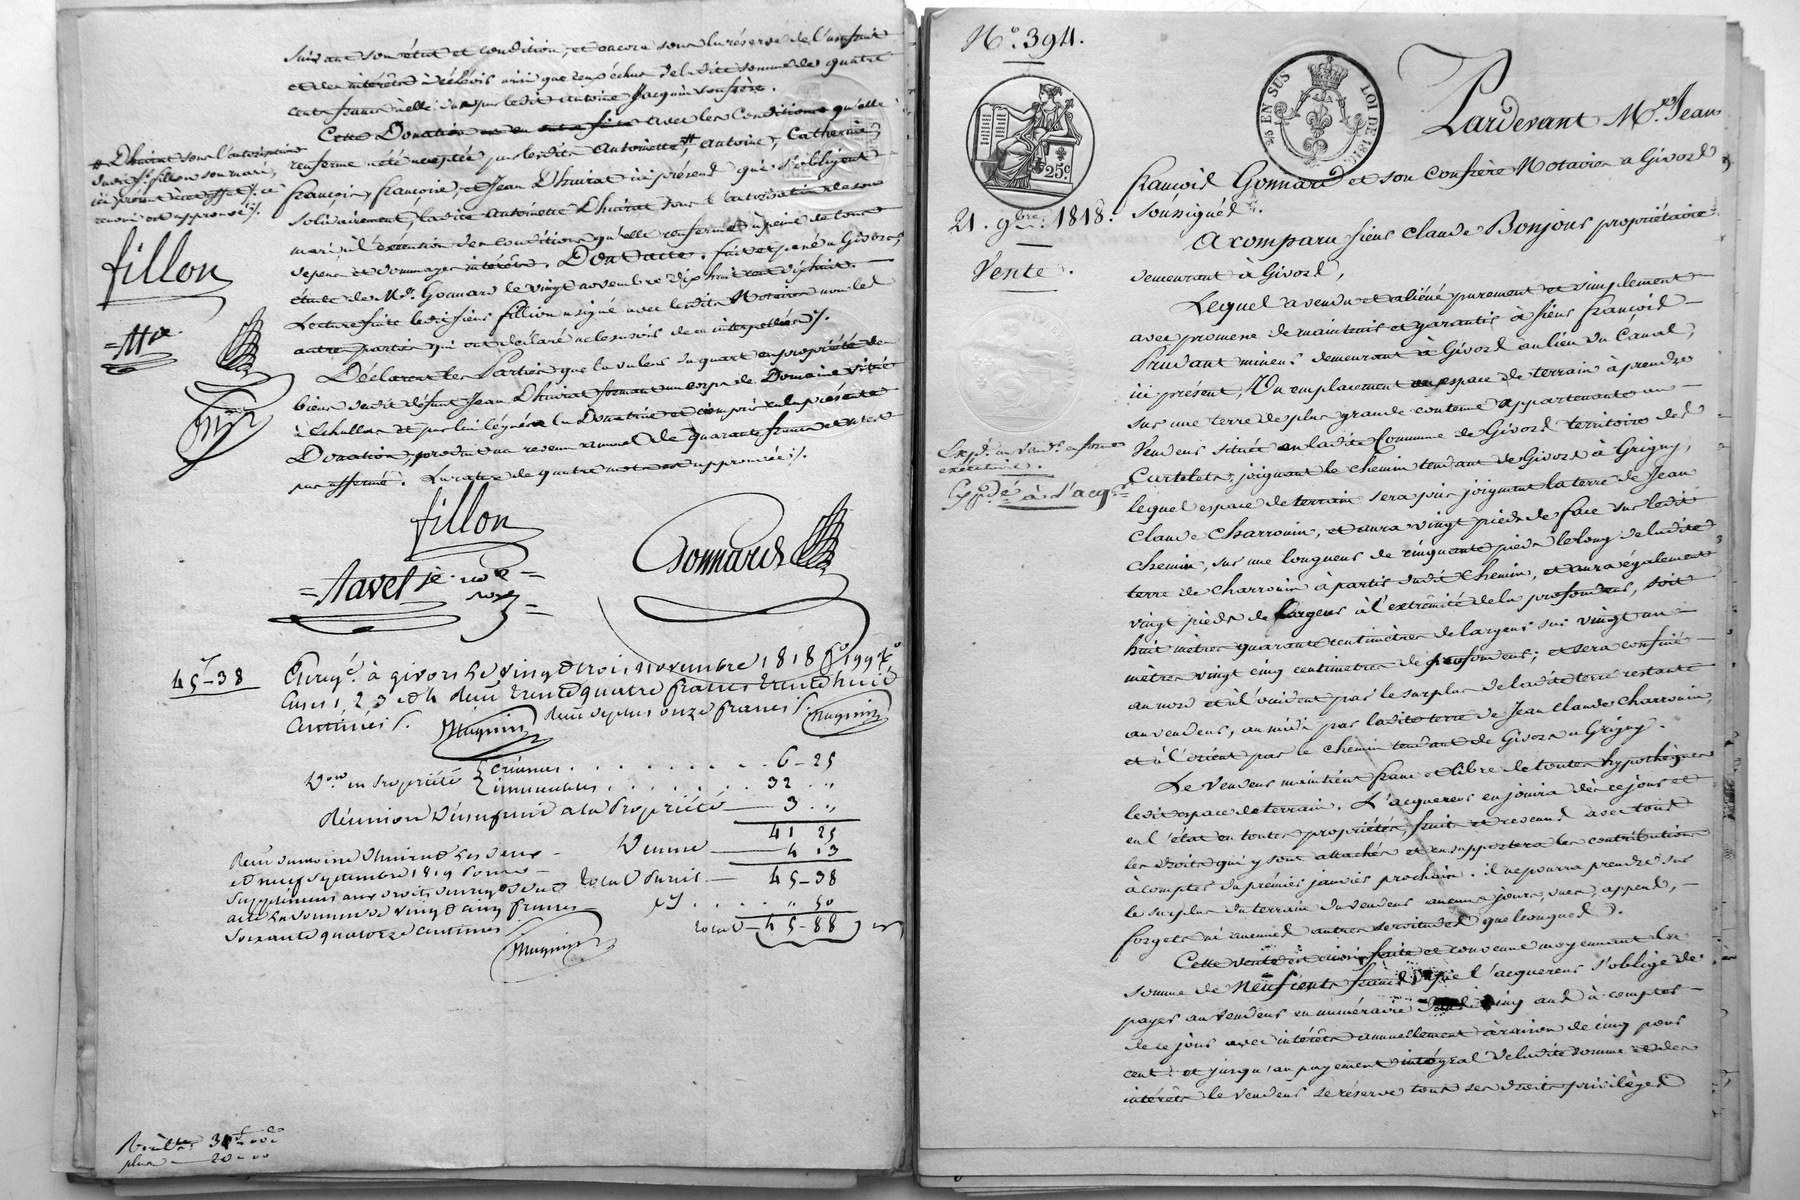 suivant son état et condition, et encore sous la réserve de l'usufruit
et des intérêts
cents francs à elle due par ledit Antoine Jacquin son frère.
Cette Donation avec les Conditions qu'elle
renferme a été acceptée par lesdits Antoinette #, Antoine, Catherine,
françois, françoise, et Jean Dhuirat ici présens qui s'obligent
solidairement, ladite Antoinette Dhuirat sous l'autorisation de son
mari, à l'exécution des conditions qu'elle renferme à peine de tous
dépens et dommages intérêts. Dont acte. fait et passé à Givors,
étude de Me. Gonnard le vingt novembre dix huit cent dix huit.
Lecture faite ledit Siens fillion a signé avec lesdits Notaires non les
autres parties qui ont déclaré ne le savoir de ce interpellées ./.
Déclarent les Parties que la valeur du quart en propriété des
biens dudit défunt Jean Dhuirat formant un corps de Domaine situé
à Echallas et par lui légué à la Donatrice et compris en la présente
Donation, produit un revenu annuel de quarante francs et n'est
pas affermé. La rature de quatre mots est approuvée ./.
# Dhuirat sous l'autorisation
dudit Sr. fillon son mari,
ici présent à cet effet /. ce
renvoi est approuvé ./.
fillon
fillon
Gonnard
=Navel je. no.re=
45-38
Enreg.é à givors le vingt trois novembre 1818 fo 199 Vo
Cases 1, 2, 3 et 4 Reçu trente quatre francs trente huit
Centimes /. Reçu de plus onze francs /.
Don en propriété { Meubles . . . . . . 6-25
immeubles . . . . . . 32 . "
Réunion d'usufruit à la Propriété — 3 . "
41 25
Dixme — 4 13
Total Parcil — 45-38
. . . . " 50
total — 45-88
et neuf septembre 1819 Pour
supplément aux droits d'enreg.t dudit
acte la somme de vingt cinq francs
soixante quatorze centimes
plus — 20-00
No. 394.
25 EN SUS
LOI DE 1816.
25c.
21. 9bre. 1818.
Vente.
exécutoire.
Expédé. à l'acqr.
Pardevant Me. Jean
françois Gonnard et son confrère Notaires à Givors
soussignés.
A comparu Siens Claude Bonjour propriétaire
demeurant à Givors,
Lequel a vendu et aliéné purement et simplement
avec promesse de maintenir et garantir à Siens françois
Prudant mineur demeurant à Givors au lieu du Canal,
ici présent, Un emplacement ou espace de terrain à prendre
sur une terre de plus grande contenue appartenante au
Vendeur située en ladite Commune de Givors territoire des
Curtelets, joignant le chemin tendant de Givors à Grigny,
lequel espace de terrain sera pris joignant la terre de Jean
Claude Charrouin, et aura vingt pieds de face sur ledit
Chemin, sur une longueur de cinquante pieds le long de ladite
terre de Charrouin à partir dudit Chemin, et aura également
vingt pieds de largeur à l'extrêmité de la profondeur, soit
huit mètres quarante centimètres de largeur sur vingt un
mètres vingt cinq centimètres de profondeur; et sera confiné
au nord et à l'occident par le surplus de ladite terre restante
au vendeur, au midi par ladite terre de Jean Claude Charrouin,
et à l'orient par le Chemin tendant de Givors à Grigny.
Le Vendeur maintient franc et libre de toutes hypothèques
ledit espace de terrain. L'acquereur en jouira dès ce jour et
en l'état en toutes propriétés, fruits et revenus avec tous
les droits qui y sont attachés et en supportera les contributions
à compter du premier janvier prochain. il ne pourra prendre sur
le surplus du terrain du vendeur aucuns jours, vues, append,
forgets ni aucunes autres servitudes quelconques.
Cette vente est ainsi faite et convenue moyennant la
somme de Neuf cents francs que l'acquereur s'oblige de
payer au Vendeur en numéraire cinq ans à compter
de ce jour avec intérêts annuellement à raison de cinq pour
cent. et jusqu'au payement intégral de ladite somme et des
intérêts le vendeur se réserve tous ses droits privilèges